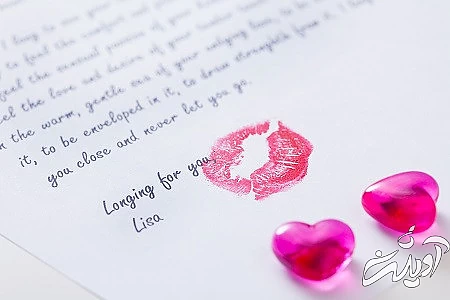 I long to see your
to feel the comfort and
feel the sensual passion of your
feel the love and desire of your
the warm, gentle sea of your undying love, to be
it, to be enveloped in it, to draw strength from it. I long
you close and never let you go.
Longing for you
Lisa